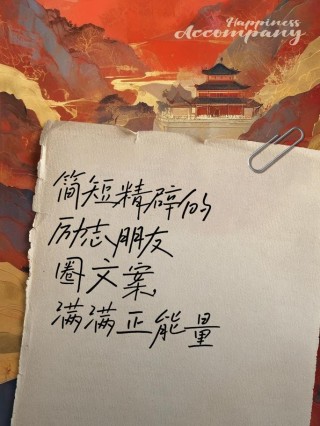 Happiness
Accompany
简短精辟的
励志朋友
圈文案，
满满正能量